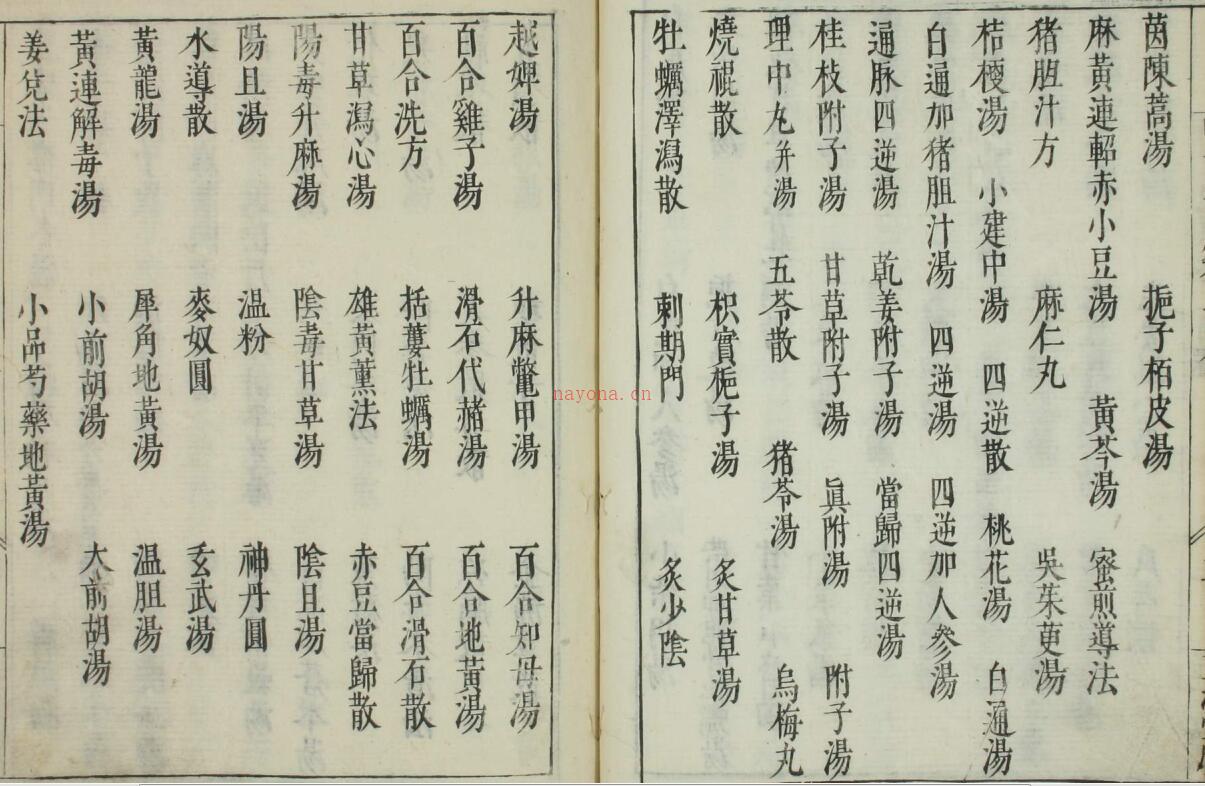 茵陳蒿湯 扼子栢皮湯
麻黃連軺赤小豆湯 黃芩湯 蜜煎導法
猪胆汁方 麻仁丸 吳茱萸湯
桔梗湯 小建中湯 四逆散 桃花湯 白通湯
白通加猪胆汁湯 四逆湯 四逆加人參湯
通脉四逆湯 乾姜附子湯 當歸四逆湯
桂枝附子湯 甘草附子湯 眞附湯 附子湯
理中丸并湯 五苓散 猪苓湯 烏梅丸
燒裩散 枳實梔子湯 炙甘草湯
牡蠣澤瀉散 刺期門 炙少陰
越婢湯 升麻鱉甲湯 百合知母湯
百合雞子湯 滑石代赭湯 百合地黃湯
百合洗方 括蔞牡蠣湯 百合滑石散
甘草瀉心湯 雄黃薰法 赤豆當歸散
陽毒升麻湯 陰毒甘草湯 陰旦湯
陽旦湯 温粉 神丹圓
水導散 麥奴圓 玄武湯
黃龍湯 犀角地黃湯 温胆湯
黃連解毒湯 小前胡湯 大前胡湯
姜兌法 小品芍藥地黃湯
nayona.cn